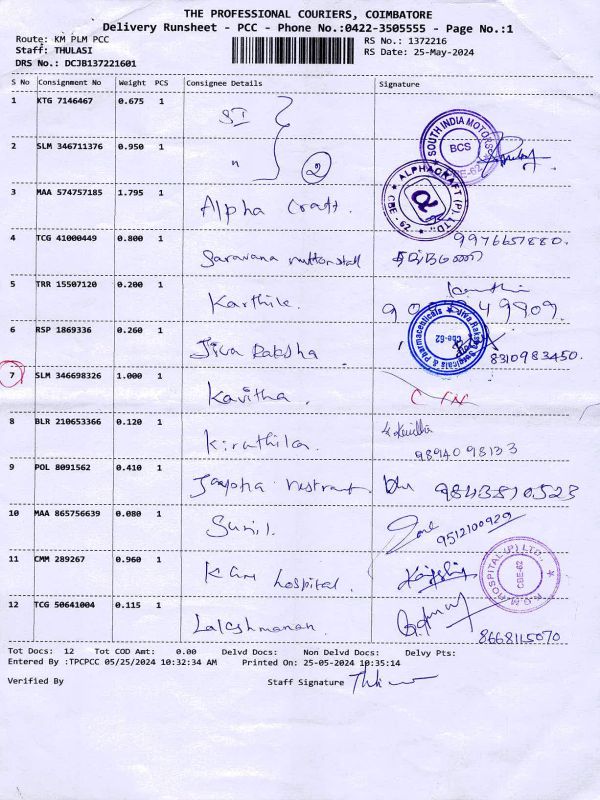 THE PROFESSIONAL COURIERS, COIMBATORE
Delivery Runsheet - PCC - Phone No.:0422-3505555 - Page No.:1
Route: KM PLM PCC RS No.: 1372216
Staff: THULASI RS Date: 25-May-2024
DRS No.: DCJB137221601
S No Consignment No Weight PCS Consignee Details Signature
1 KTG 7146467 0.675 1 SI
SOUTH INDIA MOTORS
BCS
CBE-62
2 SLM 346711376 0.950 1 " 2
3 MAA 574757185 1.795 1 Alpha Craft.
ALPHACRAFT (P) LTD.
CBE - 62
4 TCG 41000449 0.800 1 Saravana mutton stall 9976657880.
5 TRR 15507120 0.200 1 Karthik.
6 RSP 1869336 0.260 1 Jiva Raksha 8310983450.
Jiva Raksha Surgicals & Pharmaceuticals
Cbe-62
7 SLM 346698326 1.000 1 Kavitha.
8 BLR 210653366 0.120 1 Kiruthika. 9894098133
9 POL 8091562 0.410 1 9843810523
10 MAA 865756639 0.080 1 Sunil. 9512100929
11 CMM 289267 0.960 1 hospital.
HOSPITAL (P) LTD.
CBE-62
12 TCG 50641004 0.115 1 Lakshmanan. 8668115070
Tot Docs: 12 Tot COD Amt: 0.00 Delvd Docs: Non Delvd Docs: Delvy Pts:
Entered By :TPCPCC 05/25/2024 10:32:34 AM Printed On: 25-05-2024 10:35:14
Verified By Staff Signature